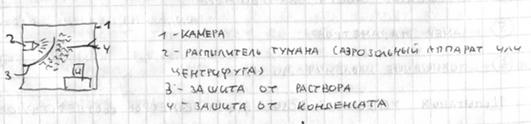 1
2
4
3
И
1 - КАМЕРА
2 - РАСПЫЛИТЕЛЬ ТУМАНА (АЭРОЗОЛЬНЫЙ АППАРАТ ИЛИ
ЦЕНТРИФУГА)
3 - ЗАЩИТА ОТ РАСТВОРА
4 - ЗАЩИТА ОТ КОНДЕНСАТА